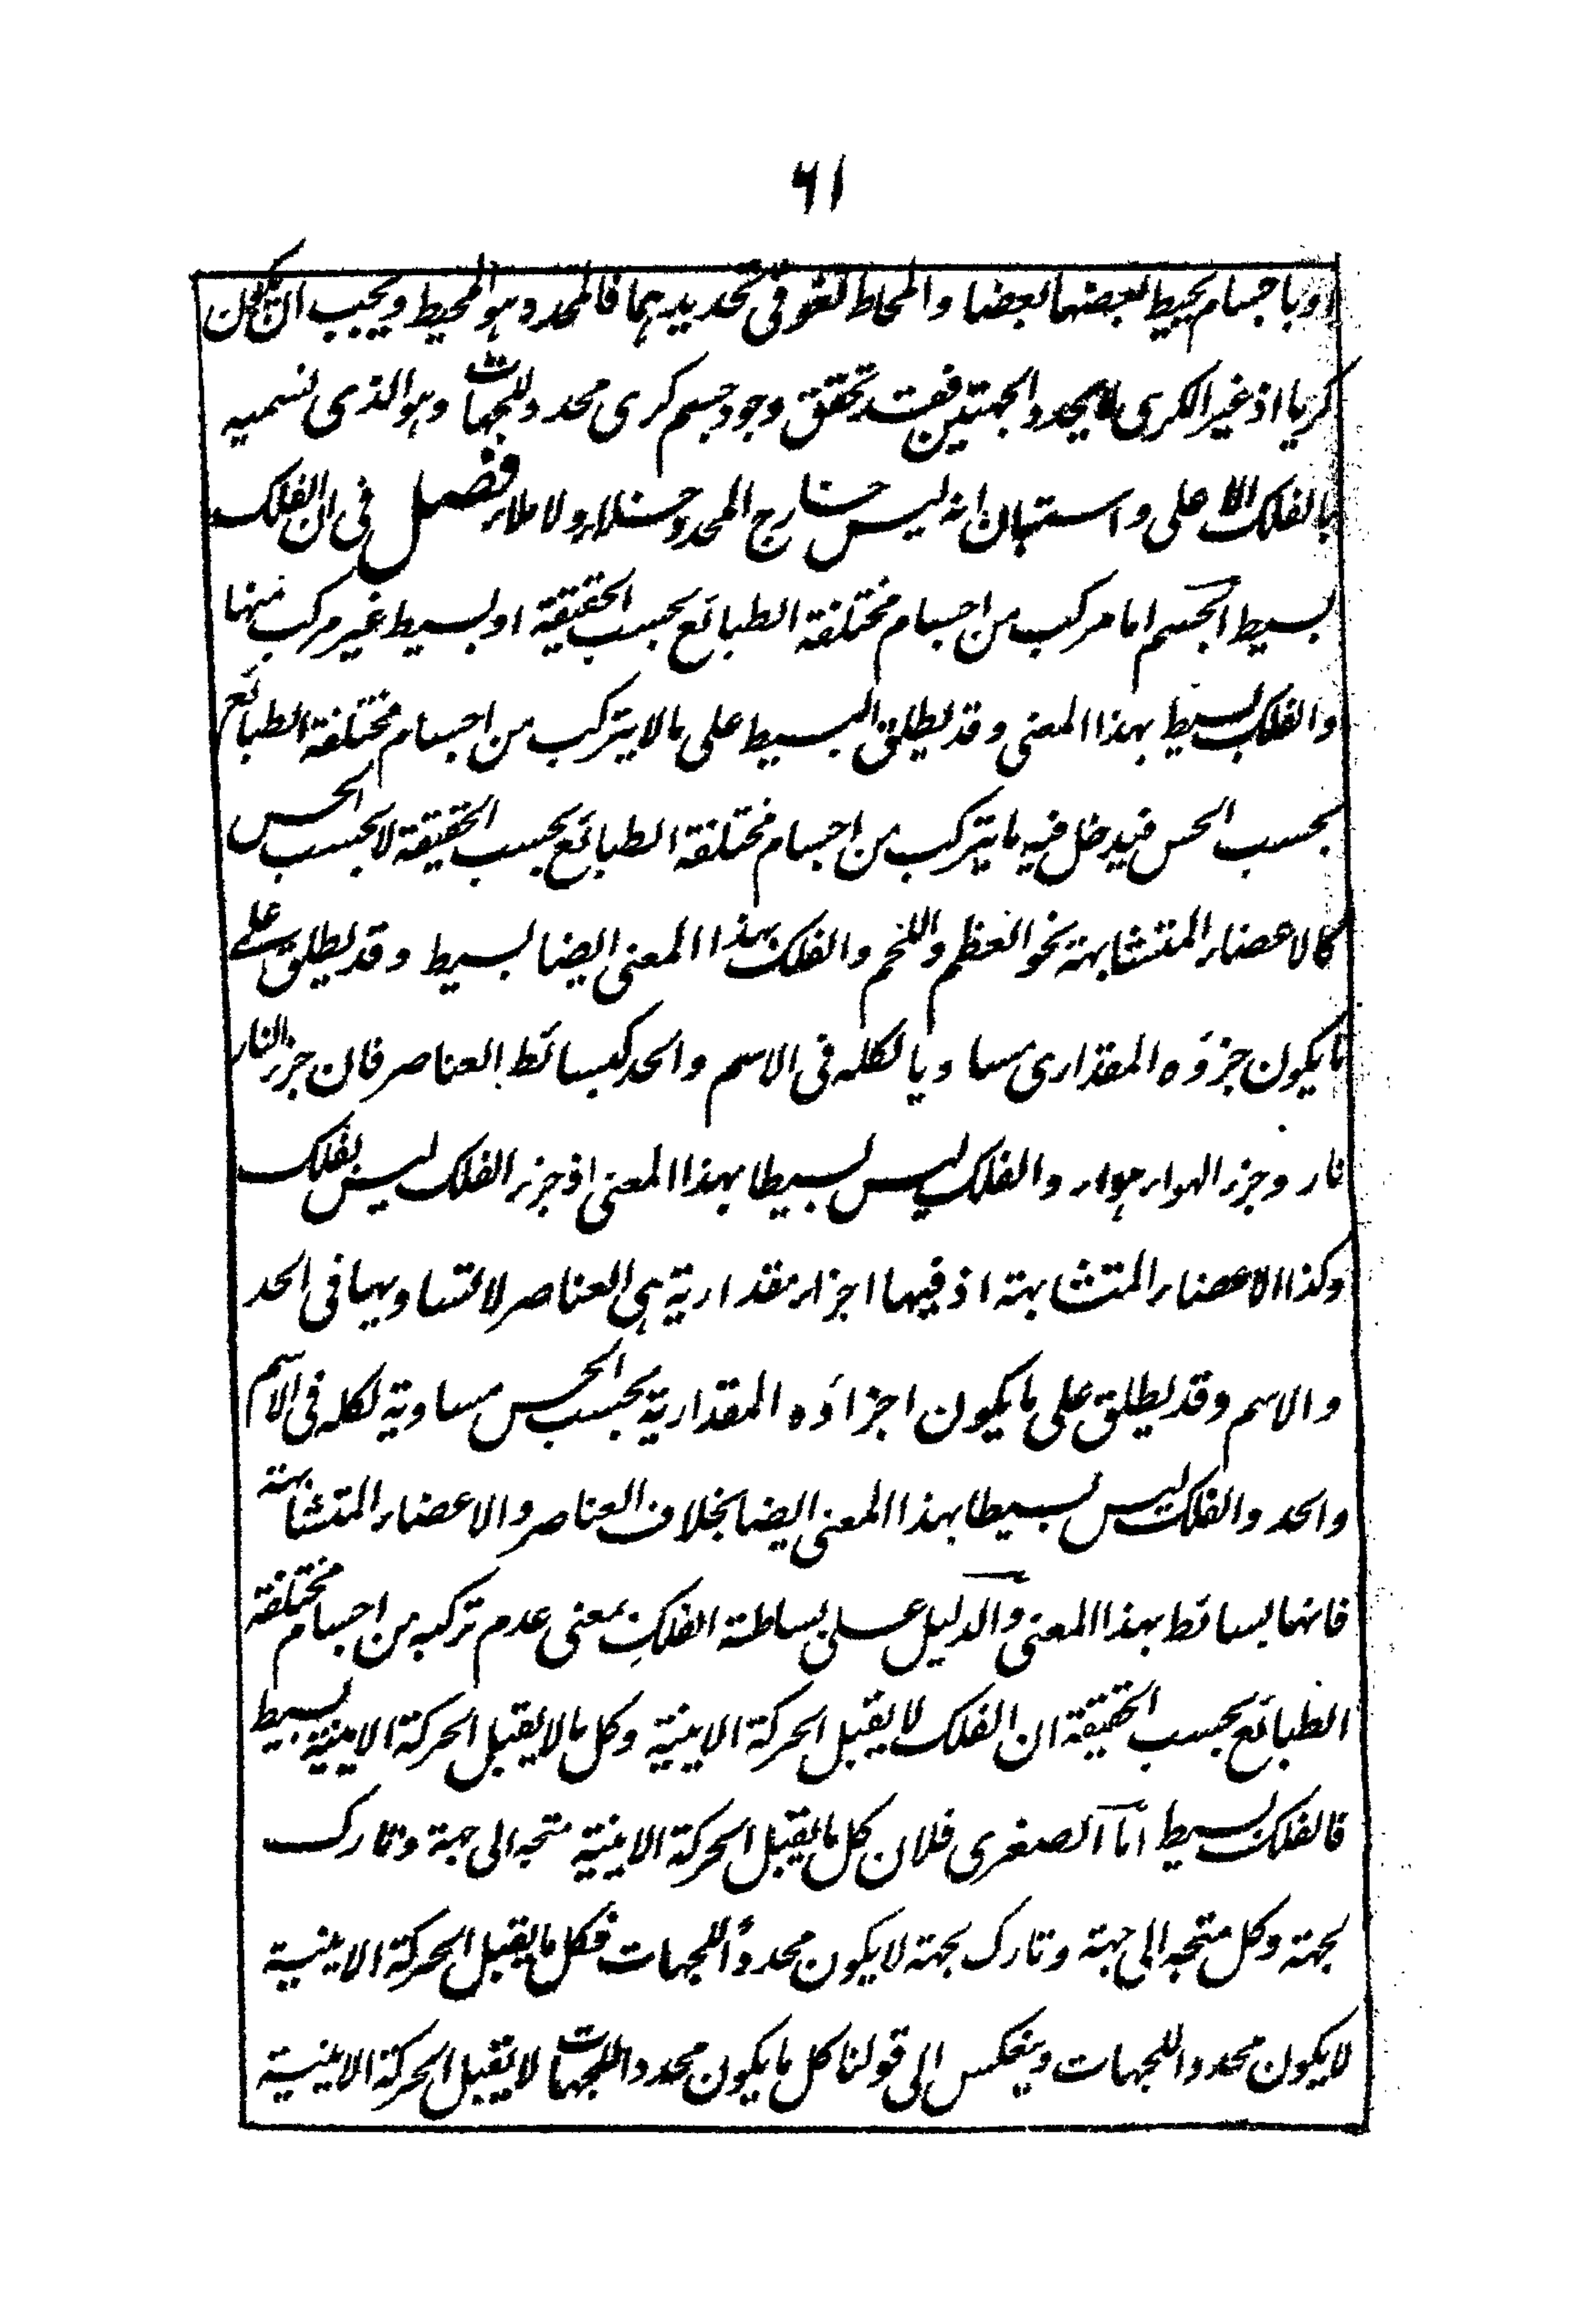 ٦١
او باجسام يحيط بعضها بعضا والمحاط لغو فى تحديدهما فالمحدد هو المحيط ويجب ان يكون
كريا اذ غير الكرى لا يحدد الجهتين فقد تحقق وجود جسم كرى محدد للجهات وهو الذى نسميه
بالفلك الاعلى واستبان انه ليس خارج المحدد خلاء ولا ملاء فصل فى ان الفلك
بسيط الجسم اما مركب من اجسام مختلفة الطبائع بحسب الحقيقة او بسيط غير مركب منها
والفلك بسيط بهذا المعنى وقد يطلق البسيط على ما لا يتركب من اجسام مختلفة الطبائع
بحسب الحس فيدخل فيه ما يتركب من اجسام مختلفة الطبائع بحسب الحقيقة لا بحسب الحس
كالاعضاء المتشابهة نحو العظم واللحم والفلك بهذا المعنى ايضا بسيط وقد يطلق على
ما يكون جزؤه المقدارى مساويا لكله فى الاسم والحد كبسائط العناصر فان جزء النار
نار وجزء الهواء هواء والفلك ليس بسيطا بهذا المعنى اذ جزء الفلك ليس بفلك
وكذا الاعضاء المتشابهة اذ فيها اجزاء مقدارية هى العناصر لا تساويها فى الحد
والاسم وقد يطلق على ما يكون اجزاؤه المقدارية بحسب الحس مساوية لكله فى الاسم
والحد والفلك ليس بسيطا بهذا المعنى ايضا بخلاف العناصر والاعضاء المتشابهة
فانها بسائط بهذا المعنى والدليل على بساطة الفلك بمعنى عدم تركبه من اجسام مختلفة
الطبائع بحسب الحقيقة ان الفلك لا يقبل الحركة الاينية وكل ما لا يقبل الحركة الاينية بسيط
فالفلك بسيط اما الصغرى فلان كل ما يقبل الحركة الاينية متجه الى جهة وتارك
لجهة وكل متجه الى جهة وتارك لجهة لا يكون محددا للجهات فكل ما يقبل الحركة الاينية
لا يكون محددا للجهات وينعكس الى قولنا كل ما يكون محددا للجهات لا يقبل الحركة الاينية